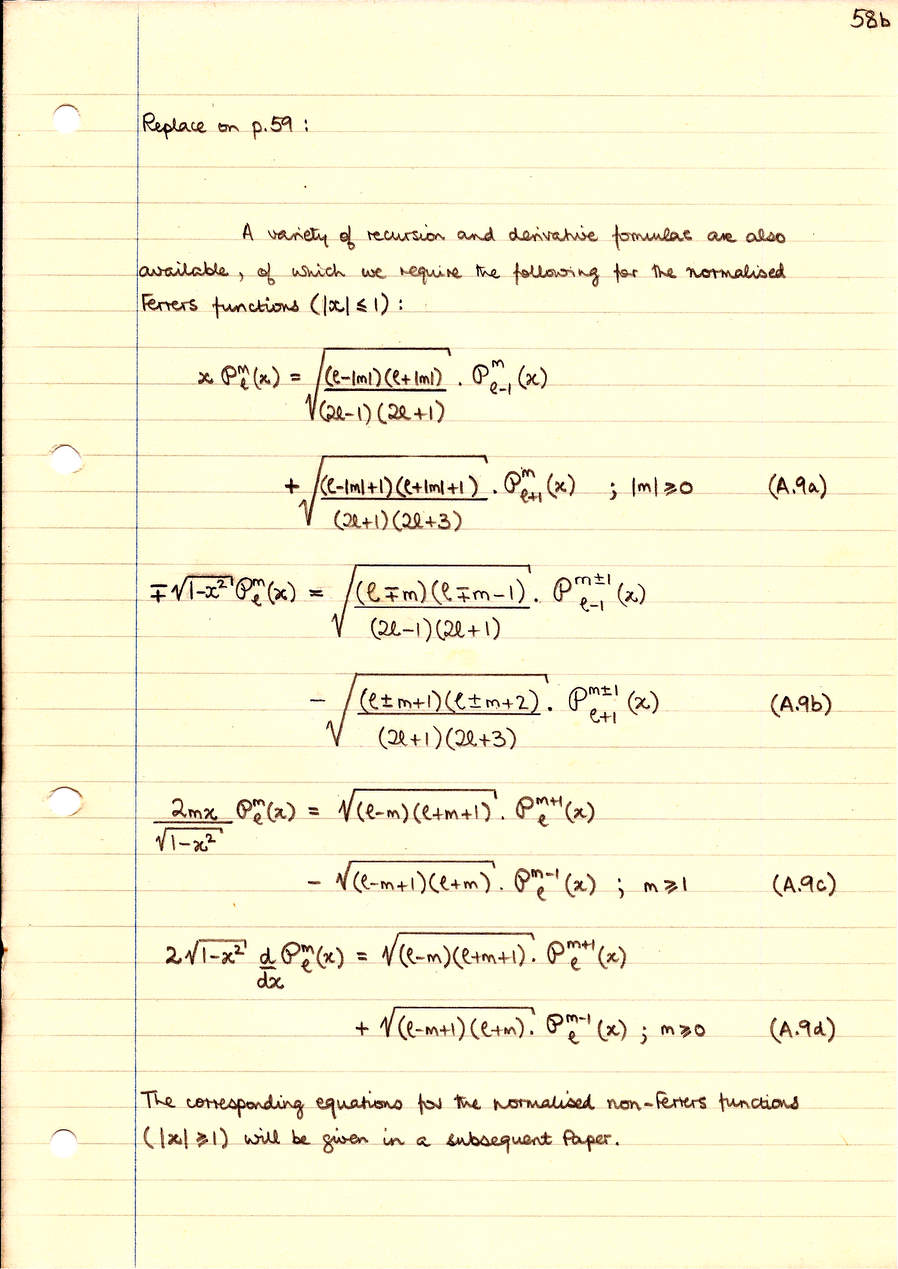 58b
Replace on p.59 :
A variety of recursion and derivative fomulae are also
available, of which we require the following for the normalised
Ferrers functions (|x| ≤ 1) :
x 𝒫_ℓ^m(x) = √[(ℓ-|m|)(ℓ+|m|) / (2ℓ-1)(2ℓ+1)] . 𝒫_{ℓ-1}^m (x)
+ √[(ℓ-|m|+1)(ℓ+|m|+1) / (2ℓ+1)(2ℓ+3)] . 𝒫_{ℓ+1}^m (x) ; |m| ≥ 0 (A.9a)
∓ √(1-x²) 𝒫_ℓ^m(x) = √[(ℓ∓m)(ℓ∓m-1) / (2ℓ-1)(2ℓ+1)] . 𝒫_{ℓ-1}^{m±1} (x)
- √[(ℓ±m+1)(ℓ±m+2) / (2ℓ+1)(2ℓ+3)] . 𝒫_{ℓ+1}^{m±1} (x) (A.9b)
2mx / √(1-x²) 𝒫_ℓ^m(x) = √((ℓ-m)(ℓ+m+1)) . 𝒫_ℓ^{m+1}(x)
- √((ℓ-m+1)(ℓ+m)) . 𝒫_ℓ^{m-1}(x) ; m ≥ 1 (A.9c)
2√(1-x²) d/dx 𝒫_ℓ^m(x) = √((ℓ-m)(ℓ+m+1)) . 𝒫_ℓ^{m+1}(x)
+ √((ℓ-m+1)(ℓ+m)) . 𝒫_ℓ^{m-1}(x) ; m ≥ 0 (A.9d)
The corresponding equations for the normalised non-Ferrers functions
(|x| ≥ 1) will be given in a subsequent Paper.